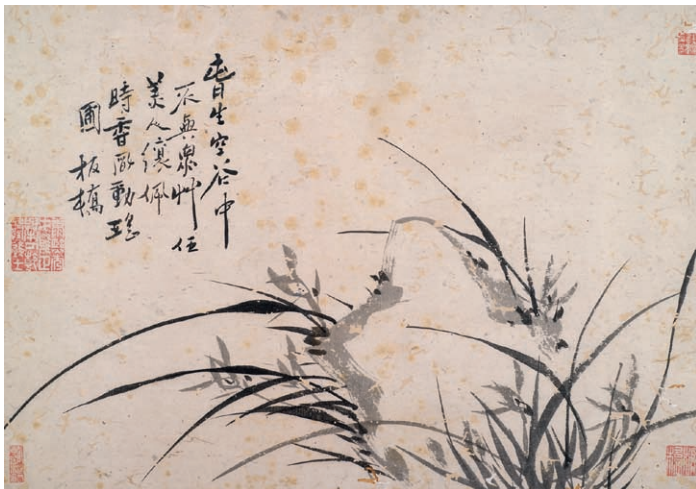 昔生空谷中
不與衆艸伍
美人纕佩
時香風動瑤
圃 板橋